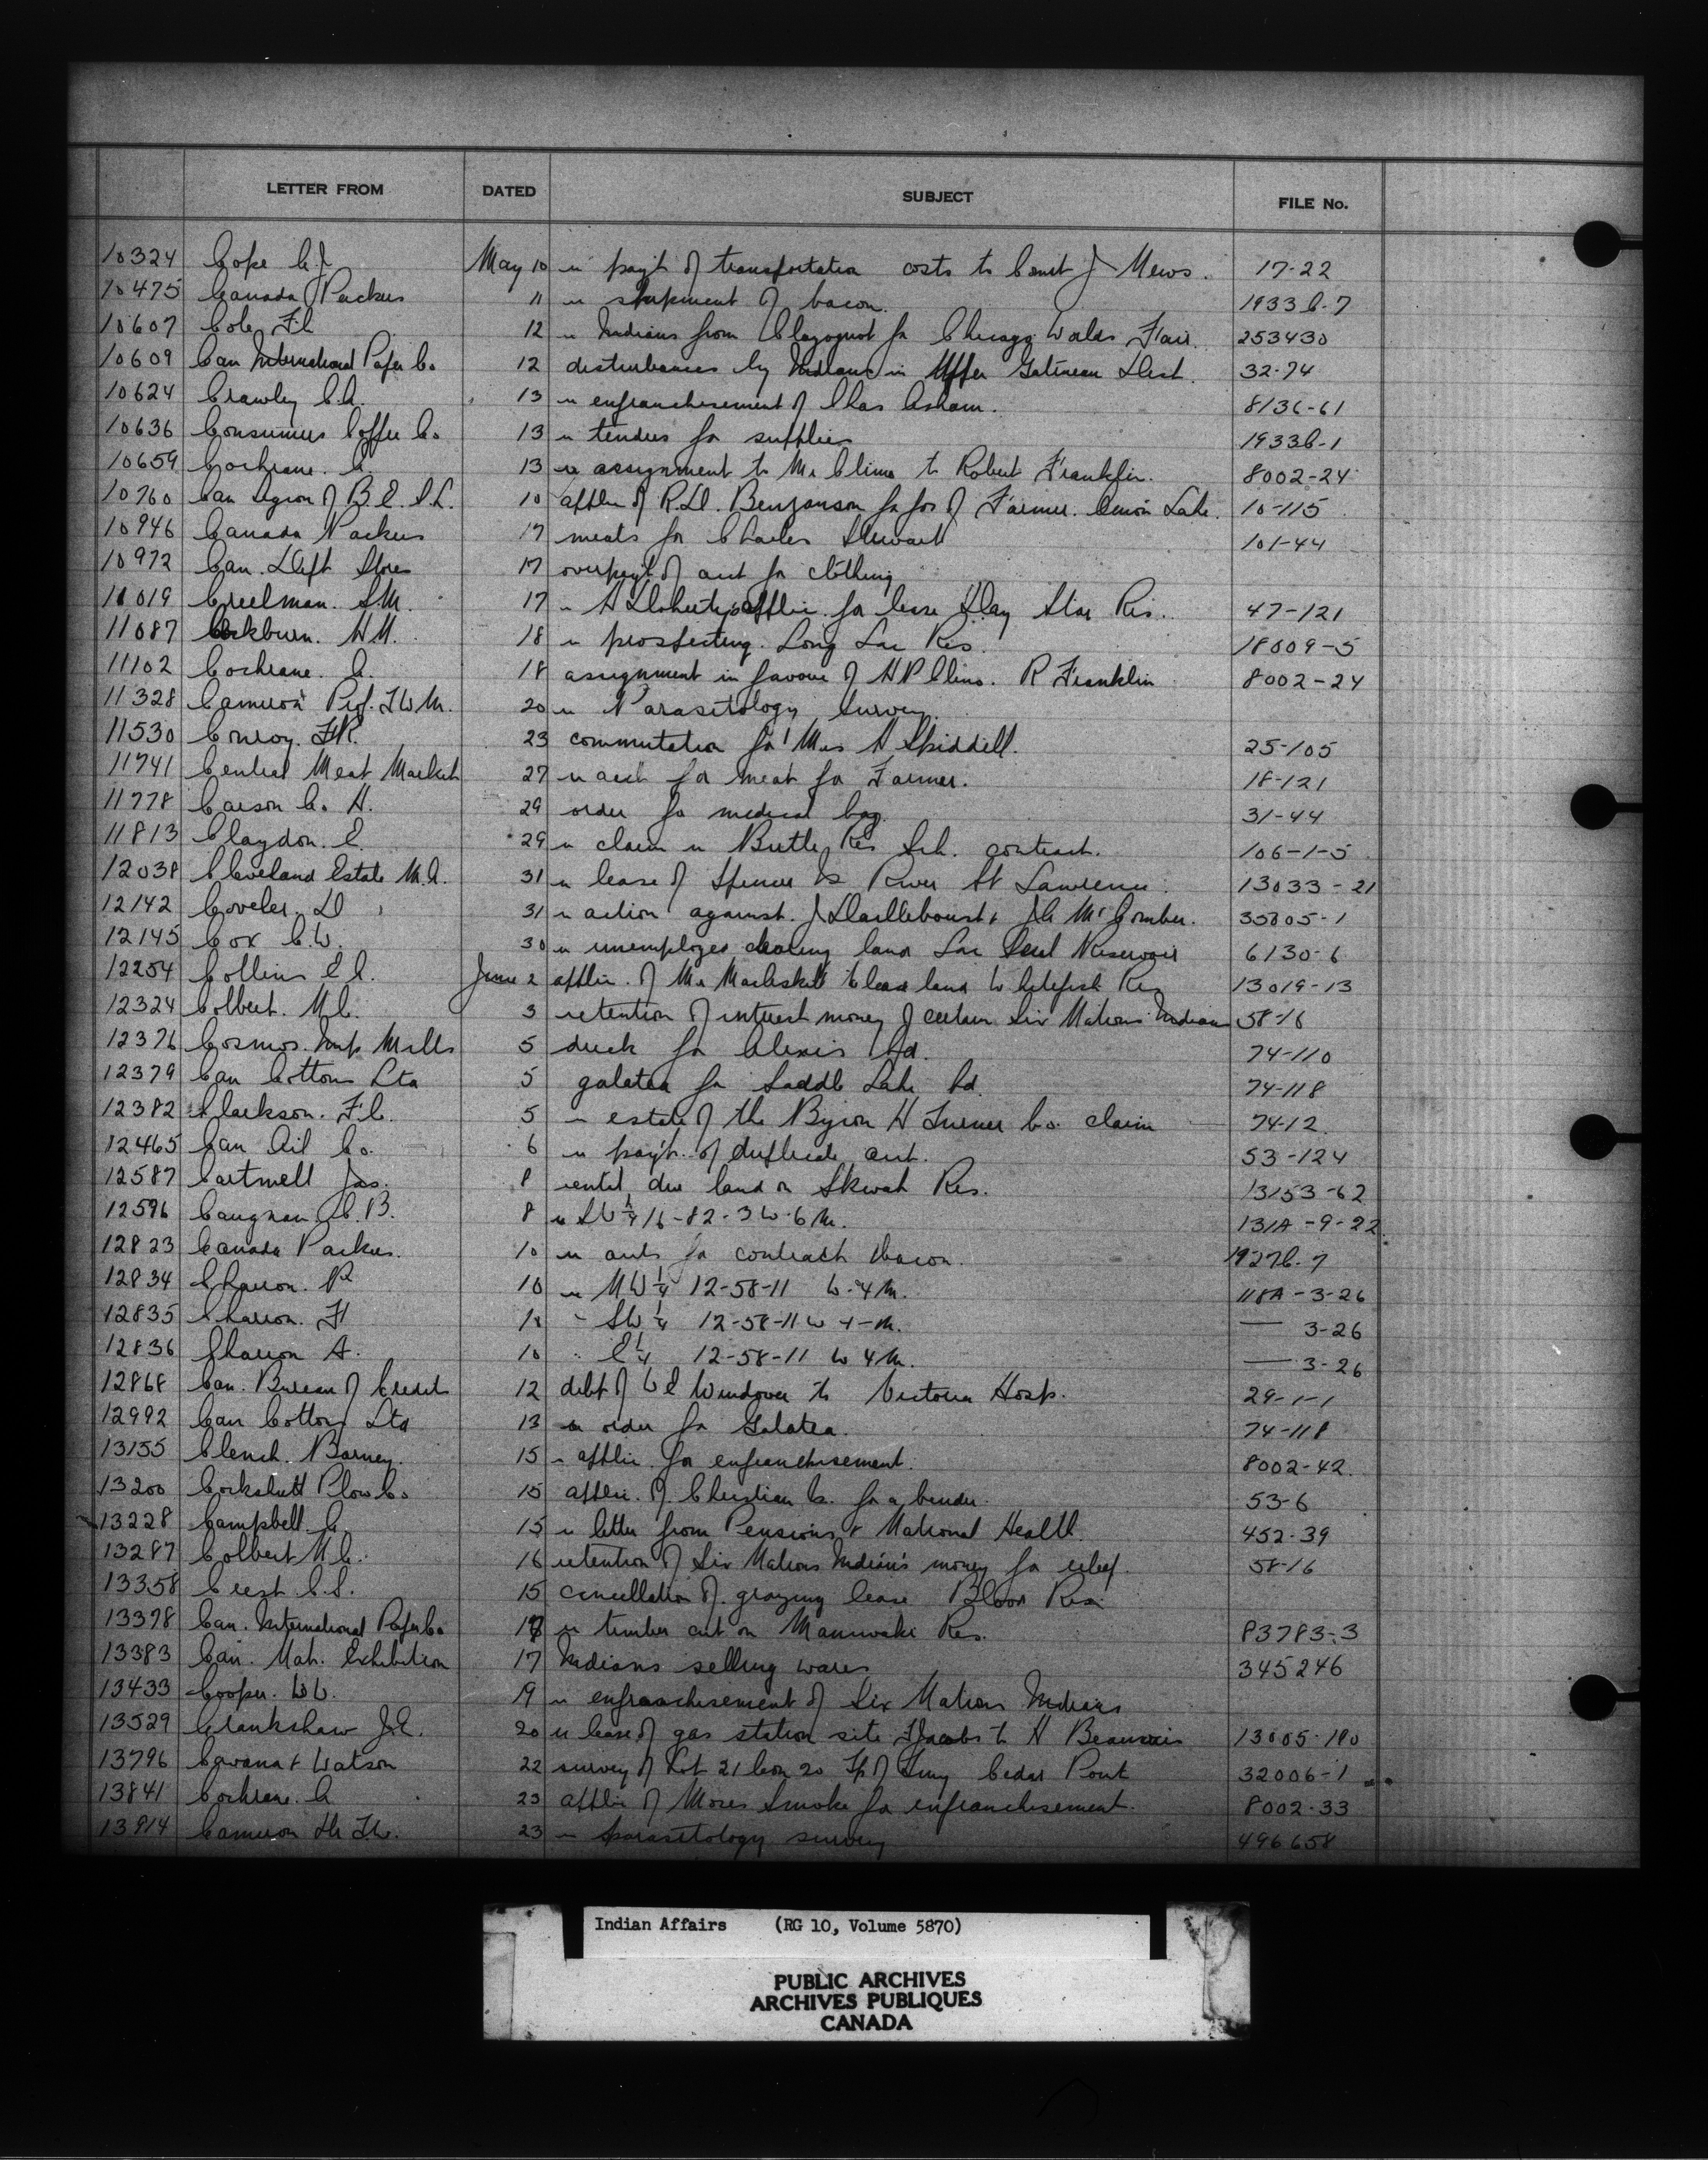 LETTER FROM DATED SUBJECT FILE No.
10324 Cope C.J. May 10 re pay't of transportation costs to Const J Mews. 17-22
10475 Canada Packers 11 re shipment of bacon. 1933C-7
10607 Cole F.C 12 re Indians from Clayoquot for Chicago Worlds Fair. 253430
10609 Can International Paper Co 12 disturbances by Indians in Upper Gatineau Dist. 32-74
10624 Crawley C.A. 13 re enfranchisement of Chas Asham. 8136-61
10636 Consumers Coffee Co 13 re tenders for supplies 1933C-1
10659 Cochrane. A. 13 re assignment to Mr Cline to Robert Franklin. 8002-24
10760 Can Legion of B.E.S.L. 10 applin of R.D. Benzanson for jos of Farmer. Union Lake. 10-115
10946 Canada Packers 17 meats for Charles Stewart 101-44
10972 Can. Dept Stores 17 overpay't of acct for clothing
11019 Creelman. S.M. 17 re A Doherty's applic. for lease Day Star Res. 47-121
11087 Cockburn. H.M. 18 re prospecting. Long Lac Res. 18009-5
11102 Cochrane. A. 18 assignment in favour of H P Cline. R Franklin 8002-24
11328 Cameron Prof. T W M. 20 re Parasitology Survey
11530 Conroy. F.R. 23 commutation for Mrs A Skiddell. 25-105
11741 Central Meat Market 27 re acct for meat for Farmer. 18-121
11778 Carson Co. H. 29 order for medical bag. 31-44
11813 Claydon. E. 29 re claim re Birtle Res Sch. contract. 106-1-5
12038 Cleveland Estate M.A. 31 re lease of Spencer Is River St Lawrence. 13033-21
12142 Coveler. D 31 re action against. J Dailleboust & J.A McComber. 35805-1
12145 Cox C.W. 30 re unemployed clearing land Lac Seul Reservoir 6130-6
12254 Collins E A. June 2 applin. of Mr to lease land Whitefish Res 13019-13
12324 Colbert. M.C. 3 retention of interest money of certain Six Nations Indians 58-16
12376 Cosmos. Imp Mills 5 duck for Alexis Bd. 74-110
12379 Can Cottons Ltd 5 galatea for Saddle Lake Bd. 74-118
12382 Clarkson. F.C. 5 re estate of the Byron H Turner Co. claim 74-12
12465 Can Oil Co. 6 re pay't. of duplicate acct. 53-124
12587 Cartmell Jas. 8 rental due land on Skwah Res. 13153-62
12596 Caughnan C.B. 8 re SW¼ 16-82-3 W.6 M. 131A-9-22
12823 Canada Packers. 10 re accts for contract bacon. 1927C.7
12834 Charron. R 10 re NW ¼ 12-58-11 W. 4 M. 118A-3-26
12835 Charron. F 10 " SW ¼ 12-58-11 W 4-M. — 3-26
12836 Charron A. 10 " E ¼ 12-58-11 W 4 M. — 3-26
12868 Can. Bureau of Credits 12 debt of W E Windover to Victoria Hosp. 29-1-1
12992 Can Cottons Ltd 13 re order for Galatea. 74-118
13155 Clench. Barney. 15 re applic. for enfranchisement. 8002-42.
13200 Cockshutt Plow Co 15 applic. of Christian Co. for a binder. 53-6
13228 Campbell. A. 15 re letter from Pensions & National Health. 452-39
13287 Colbert M C. 16 retention of Six Nations Indian's money for relief. 58-16
13358 Crest C.S. 15 cancellation of. grazing lease Blood Res.
13378 Can. International Paper Co 17 re timber cut on Maniwaki Res. 83783-3
13383 Can. Nat. Exhibition 17 Indians selling wares 345246
13433 Cooper. W W. 19 re enfranchisement of Six Nations Indians
13529 Crankshaw J.E. 20 re lease of gas station site F Jacobs to H Beauvais 13005-190
13796 Cavana & Watson 22 survey of Lot 21 Con 20 Tp of Tiny Cedar Point 32006-1
13841 Cochrane. A 23 applic of Moses Smoke for enfranchisement. 8002-33
13914 Cameron Dr T.W. 23 re parasitology survey 496658
Indian Affairs (RG 10, Volume 5870)
PUBLIC ARCHIVES
ARCHIVES PUBLIQUES
CANADA